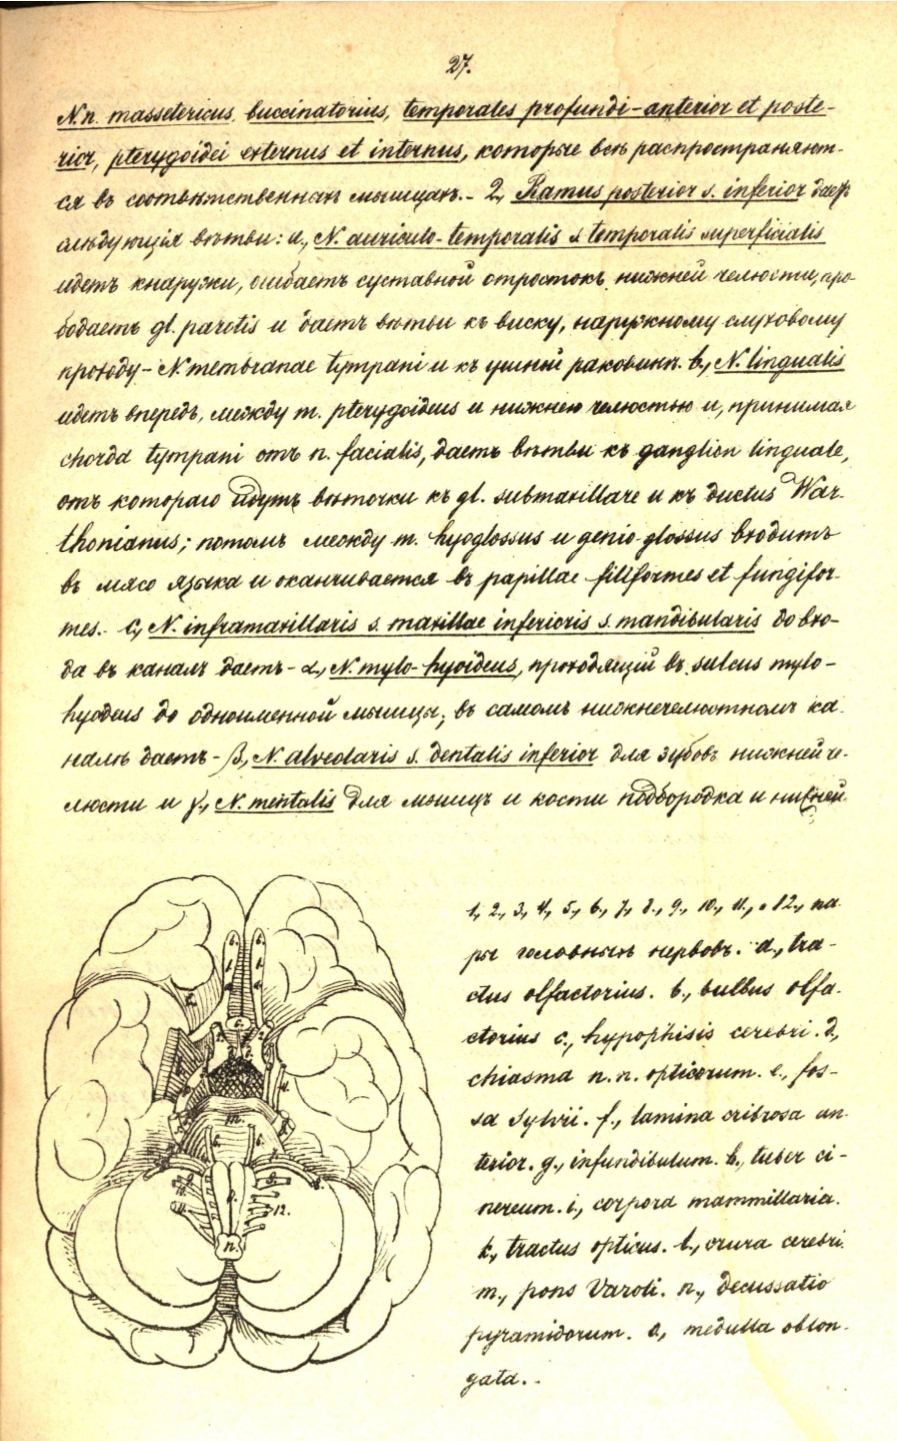 27.
N.n. massetericus, buccinatorius, temporales profundi-anterior et poste-
rior, pterygoidei externus et internus, которые всѣ распространяют-
ся въ соотвѣтственныхъ мышцахъ.- 2, Ramus posterior s. inferior даетъ
слѣдующія вѣтви: a., N. auriculo-temporalis s temporalis superficialis
идетъ кнаружи, огибаетъ суставной отростокъ нижней челюсти, про-
бодаетъ gl. parotis и даетъ вѣтви къ виску, наружному слуховому
проходу - N. membranae tympani и къ ушной раковинѣ. b., N. lingualis
идетъ впередъ, между m. pterygoideus и нижнею челюстью и, принимая
chorda tympani отъ n. facialis, даетъ вѣтви къ ganglion linguale,
отъ котораго идутъ вѣточки къ gl. submaxillare и къ ductus War-
thonianus; потомъ между m. hyoglossus и genio glossus входитъ
въ мясо языка и оканчивается въ papillae filiformes et fungifor-
mes. c., N. inframaxillaris s. maxillae inferioris s. mandibularis до вхо-
да въ каналъ даетъ - α., N. mylo-hyoideus, проходящій въ sulcus mylo-
hyodeus до одноименной мышцы; въ самомъ нижнечелюстномъ ка-
налѣ даетъ - β., N. alveolaris s. dentalis inferior для зубовъ нижней че-
люсти и γ., N. mentalis для мышцъ и кости подбородка и нижней
1., 2., 3., 4., 5., 6., 7., 8., 9., 10., 11., и 12., па-
ры головныхъ нервовъ. a., tra-
ctus olfactorius. b., bulbus olfa-
ctorius c., hypophisis cerebri. d.,
chiasma n.n. opticorum. e., fos-
sa Sylvii. f., lamina cribrosa an-
terior. g., infundibulum. h., tuber ci-
nereum. i., corpora mammillaria.
k., tractus opticus. l., crura cerebri.
m., pons Varoli. n., decussatio
pyramidorum. o., medulla oblon-
gata.-
m.
12.
n.